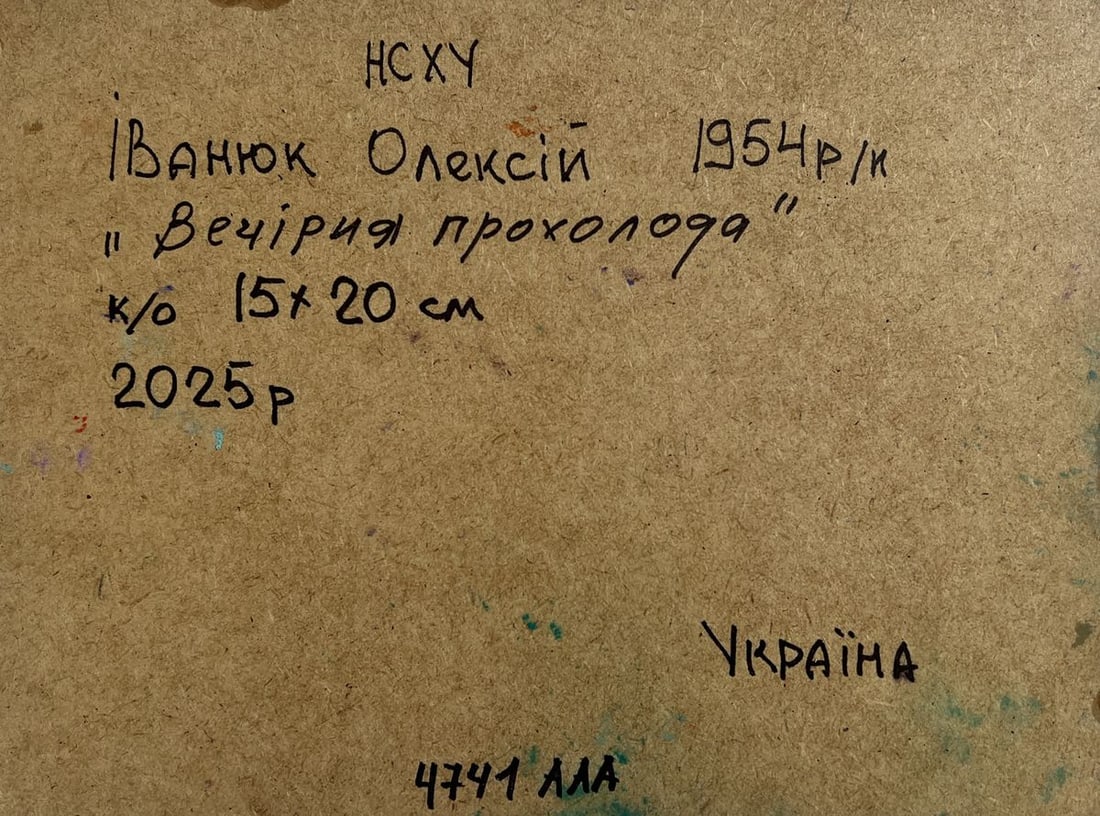 НСХУ
Іванюк Олексій 1954 р/н
„Вечірня прохолода"
к/о 15х20 см
2025р
Україна
4741 АЛА